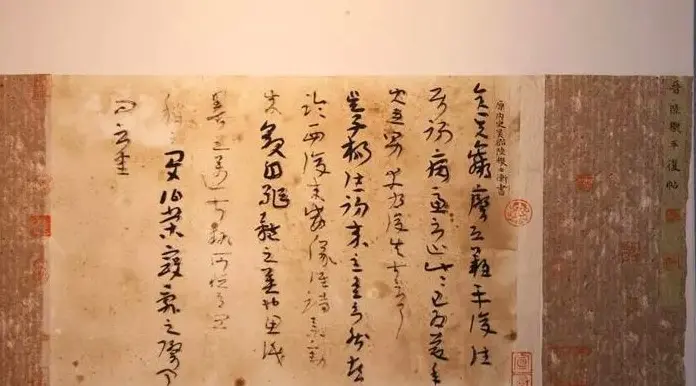 晉陸機平復帖
原內史吳郡陸機士衡書
彥先羸瘵恐難平復往
屬初病慮不止此此已為慶承
使唯男幸為復失前憂耳
吳子楊往初來主吾不能盡
臨西復來威儀詳跱舉動
成觀自軀體之美也思識
量之邁前執所恆有宜
稱之夏伯榮寇亂之際聞
問不悉